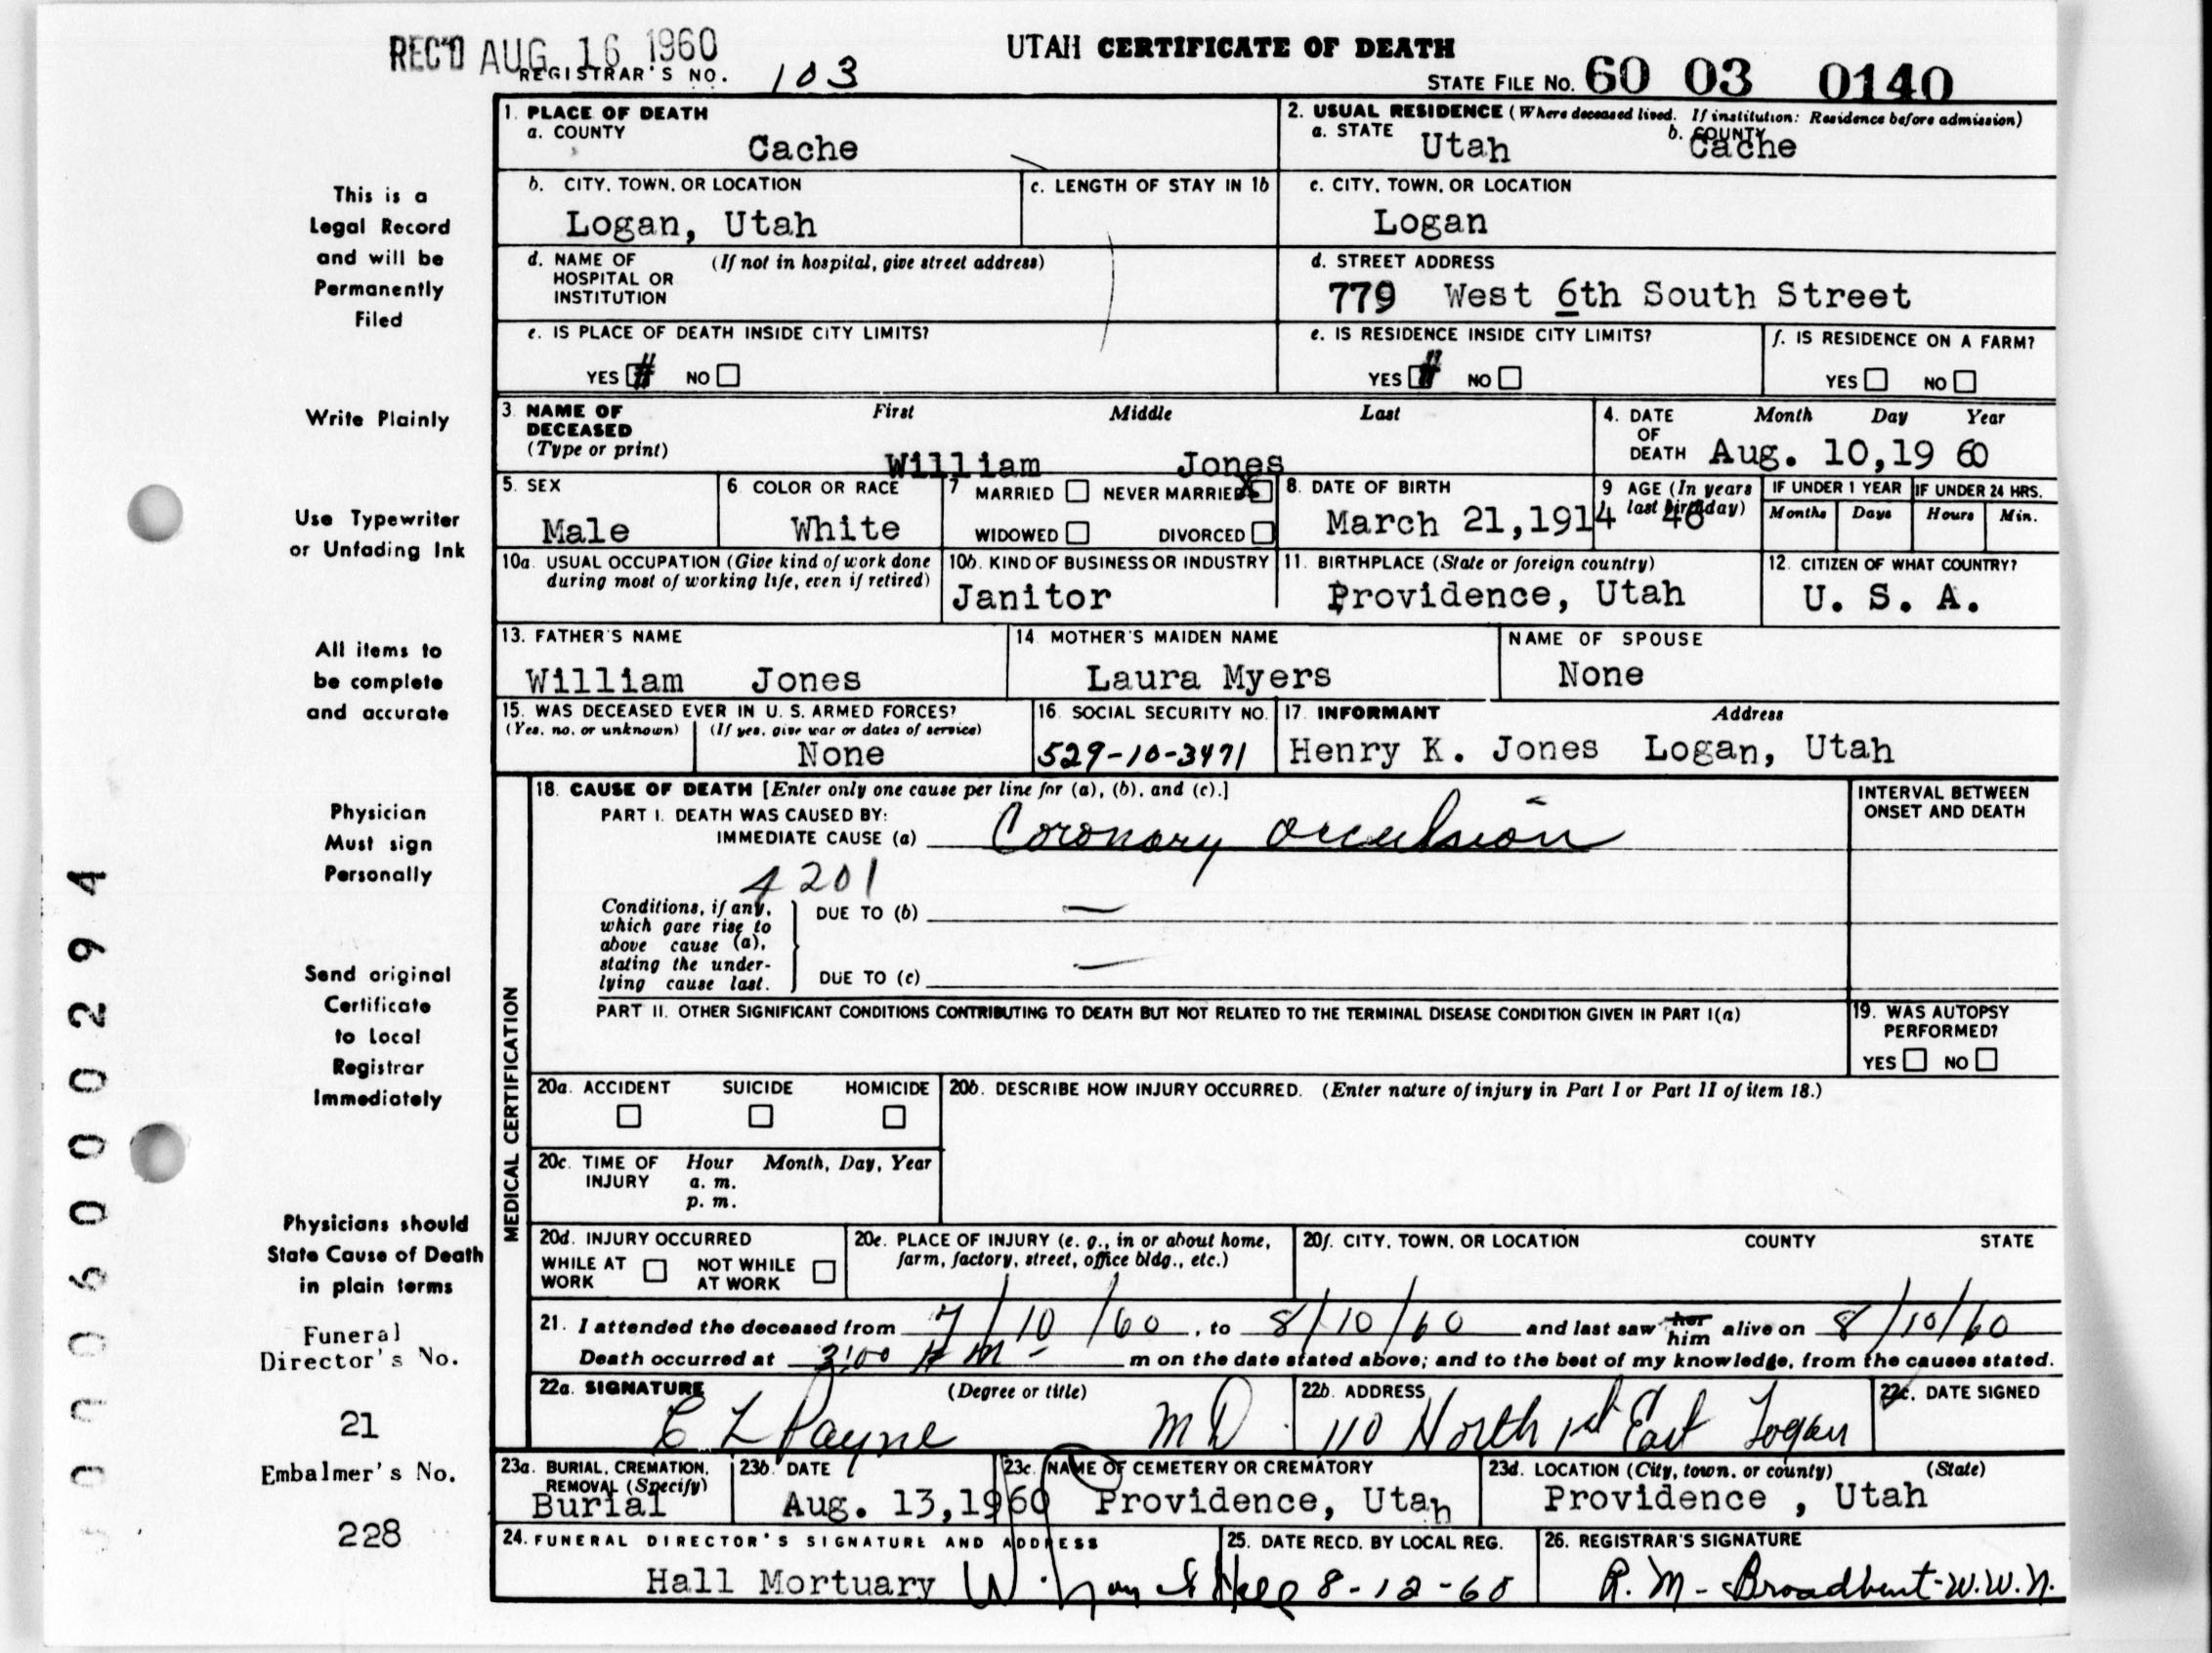 REC'D AUG 16 1960
REGISTRAR'S NO. 103
UTAH CERTIFICATE OF DEATH
STATE FILE NO. 60 03 0140
1. PLACE OF DEATH
a. COUNTY
Cache
2. USUAL RESIDENCE (Where deceased lived. If institution: Residence before admission)
a. STATE Utah b. COUNTY Cache
b. CITY, TOWN, OR LOCATION
Logan, Utah
c. LENGTH OF STAY IN 1b
c. CITY, TOWN, OR LOCATION
Logan
d. NAME OF HOSPITAL OR INSTITUTION (If not in hospital, give street address)
d. STREET ADDRESS
779 West 6th South Street
e. IS PLACE OF DEATH INSIDE CITY LIMITS?
YES # NO
e. IS RESIDENCE INSIDE CITY LIMITS?
YES # NO
f. IS RESIDENCE ON A FARM?
YES NO
3. NAME OF DECEASED (Type or print)
First Middle Last
William Jones
4. DATE OF DEATH Month Day Year
Aug. 10,19 60
5. SEX
Male
6. COLOR OR RACE
White
7 MARRIED NEVER MARRIED X
WIDOWED DIVORCED
8. DATE OF BIRTH
March 21,1914
9 AGE (In years last birthday)
46
IF UNDER 1 YEAR
Months Days
IF UNDER 24 HRS.
Hours Min.
10a. USUAL OCCUPATION (Give kind of work done during most of working life, even if retired)
10b. KIND OF BUSINESS OR INDUSTRY
Janitor
11. BIRTHPLACE (State or foreign country)
Providence, Utah
12. CITIZEN OF WHAT COUNTRY?
U. S. A.
13. FATHER'S NAME
William Jones
14. MOTHER'S MAIDEN NAME
Laura Myers
NAME OF SPOUSE
None
15. WAS DECEASED EVER IN U. S. ARMED FORCES?
(Yes, no, or unknown) (If yes, give war or dates of service)
None
16. SOCIAL SECURITY NO.
529-10-3471
17. INFORMANT Address
Henry K. Jones Logan, Utah
MEDICAL CERTIFICATION
18. CAUSE OF DEATH [Enter only one cause per line for (a), (b), and (c).]
PART I. DEATH WAS CAUSED BY:
IMMEDIATE CAUSE (a) Coronary occulsion
4201
Conditions, if any, which gave rise to above cause (a), stating the underlying cause last.
DUE TO (b) —
DUE TO (c) —
INTERVAL BETWEEN ONSET AND DEATH
PART II. OTHER SIGNIFICANT CONDITIONS CONTRIBUTING TO DEATH BUT NOT RELATED TO THE TERMINAL DISEASE CONDITION GIVEN IN PART I(a)
19. WAS AUTOPSY PERFORMED?
YES NO
20a. ACCIDENT SUICIDE HOMICIDE
20b. DESCRIBE HOW INJURY OCCURRED. (Enter nature of injury in Part I or Part II of item 18.)
20c. TIME OF INJURY Hour Month, Day, Year
a. m.
p. m.
20d. INJURY OCCURRED
WHILE AT WORK NOT WHILE AT WORK
20e. PLACE OF INJURY (e. g., in or about home, farm, factory, street, office bldg., etc.)
20f. CITY, TOWN, OR LOCATION COUNTY STATE
21. I attended the deceased from 7/10/60, to 8/10/60 and last saw her him alive on 8/10/60
Death occurred at 3:00 m on the date stated above; and to the best of my knowledge, from the causes stated.
22a. SIGNATURE (Degree or title)
C L Payne MD
22b. ADDRESS
110 North 1st East Logan
22c. DATE SIGNED
23a. BURIAL, CREMATION, REMOVAL (Specify)
Burial
23b. DATE
Aug. 13,1960
23c. NAME OF CEMETERY OR CREMATORY
Providence, Utah
23d. LOCATION (City, town, or county) (State)
Providence , Utah
24. FUNERAL DIRECTOR'S SIGNATURE AND ADDRESS
Hall Mortuary
25. DATE RECD. BY LOCAL REG.
8-12-60
26. REGISTRAR'S SIGNATURE
R. M. Broadbent-W.W.N.
This is a
Legal Record
and will be
Permanently
Filed
Write Plainly
Use Typewriter
or Unfading Ink
All items to
be complete
and accurate
Physician
Must sign
Personally
Send original
Certificate
to Local
Registrar
Immediately
Physicians should
State Cause of Death
in plain terms
Funeral
Director's No.
21
Embalmer's No.
228